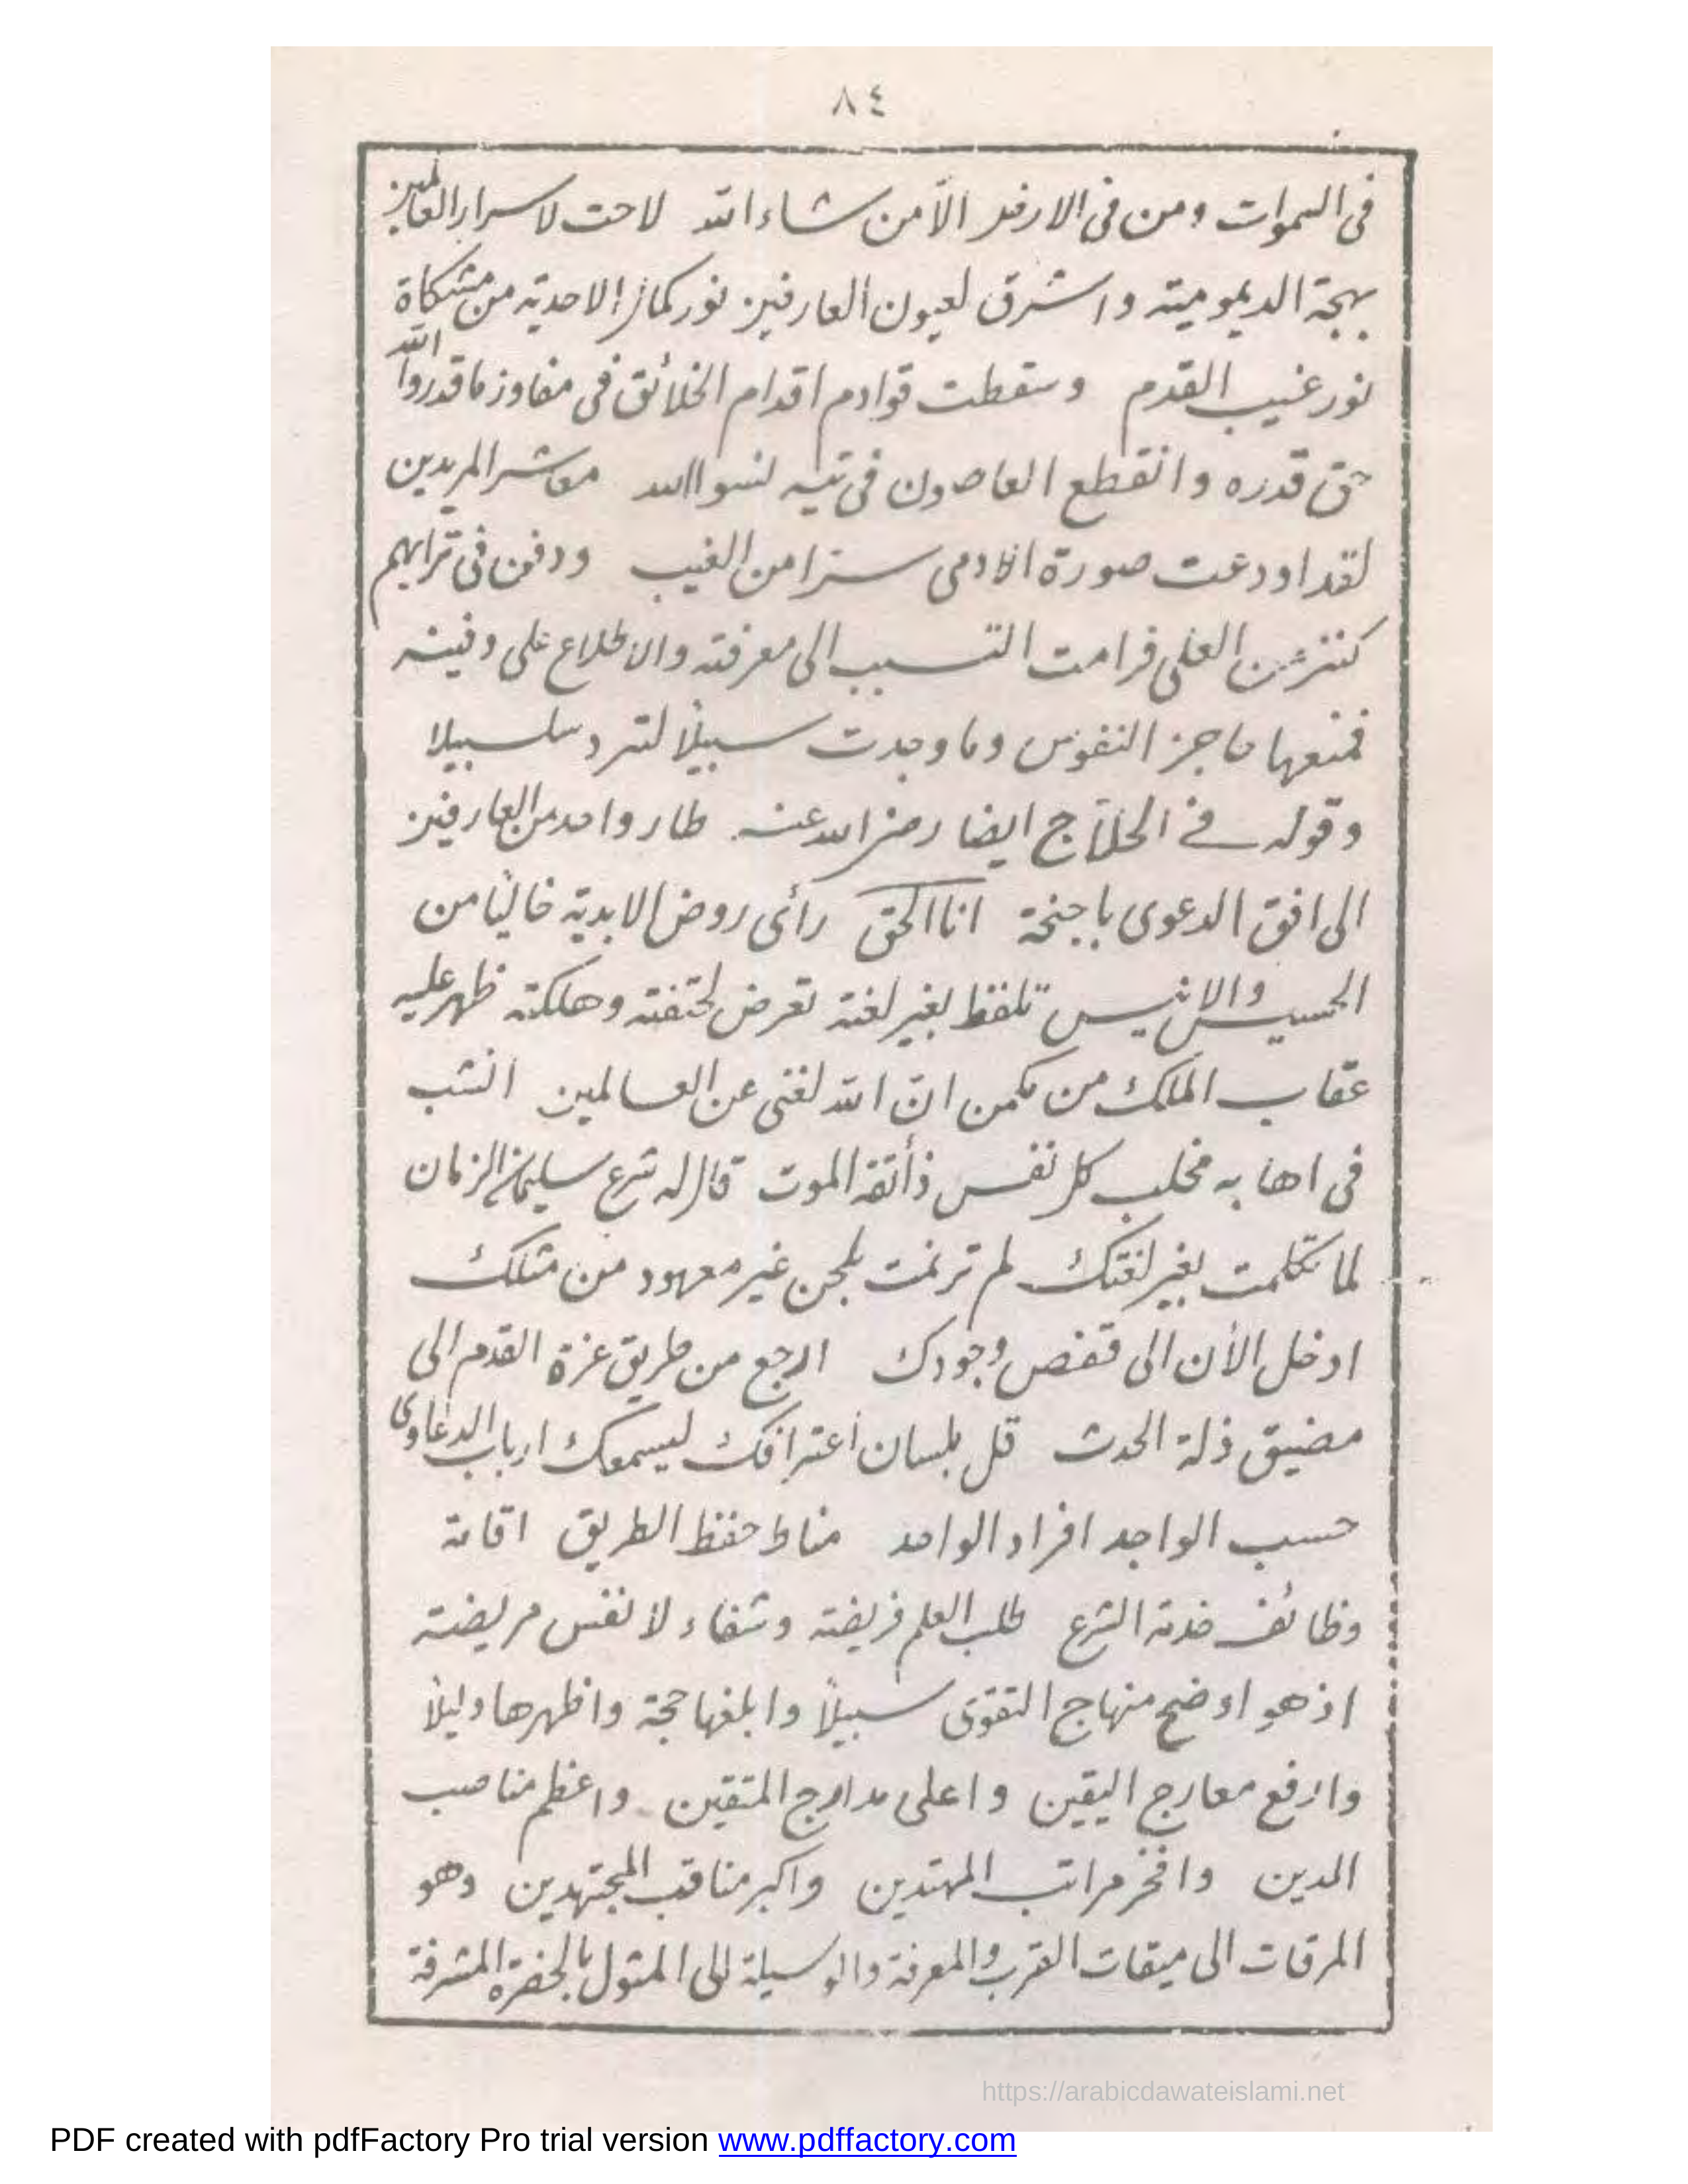 ٨٤
فى السموات ومن فى الارض الّا من شاء الله لاحت لاسرار العالمين
بهجة الديمومية واشرق لعيون العارفين نور كمال الاحدية من مشكاة
نور غيب القدم وسقطت قوادم اقدام الخلائق فى مفاوز ما قدروا الله
حق قدره وانقطع القاصدون فى تيه نسوا الله معاشر المريدين
لقد اودعت صورة الآدمى سترا من الغيب ودفن فى ترابهم
كنز من العلى فرامت التسبب الى معرفته والاطلاع على دفينه
فمنعها حاجز النفوس وما وجدت سبيلاً لترد سلسبيلا
وقوله فى الحلّاج ايضا رضى الله عنه طار واحد من العارفين
الى افق الدعوى باجنحة انا الحق رأى روض الابدية خاليًا من
الحسيس والانيس تلفظ بغير لغته تعرض لحتفته وهلكته ظهر عليه
عقاب الملك من مكمن انّ الله لغنى عن العالمين انشب
فى اهابه مخلب كل نفس ذائقة الموت قال له شرع سليمان الزمان
لما تكلمت بغير لغتك لم ترنمت بلحن غير معهود من مثلك
ادخل الأن الى قفص وجودك ارجع من طريق عزة القدم الى
مضيق ذلة الحدث قل بلسان اعترافك ليسمعك ارباب الدعاوى
حسب الواجد افراد الواحد مناط حفظ الطريق اقامة
وظائف خدمة الشرع طلب العلم فريضة وشفاء لانفس مريضة
اذ هو اوضح منهاج التقوى سبيلاً وابلغها حجة واظهرها دليلاً
وارفع معارج اليقين واعلى مدارج المتقين واعظم مناصب
الدين وافخر مراتب المهتدين واكبر مناقب المجتهدين وهو
المرقات الى ميقات القرب والمعرفة والوسيلة الى المثول بالحضرة المشرفة
https://arabicdawateislami.net
PDF created with pdfFactory Pro trial version www.pdffactory.com